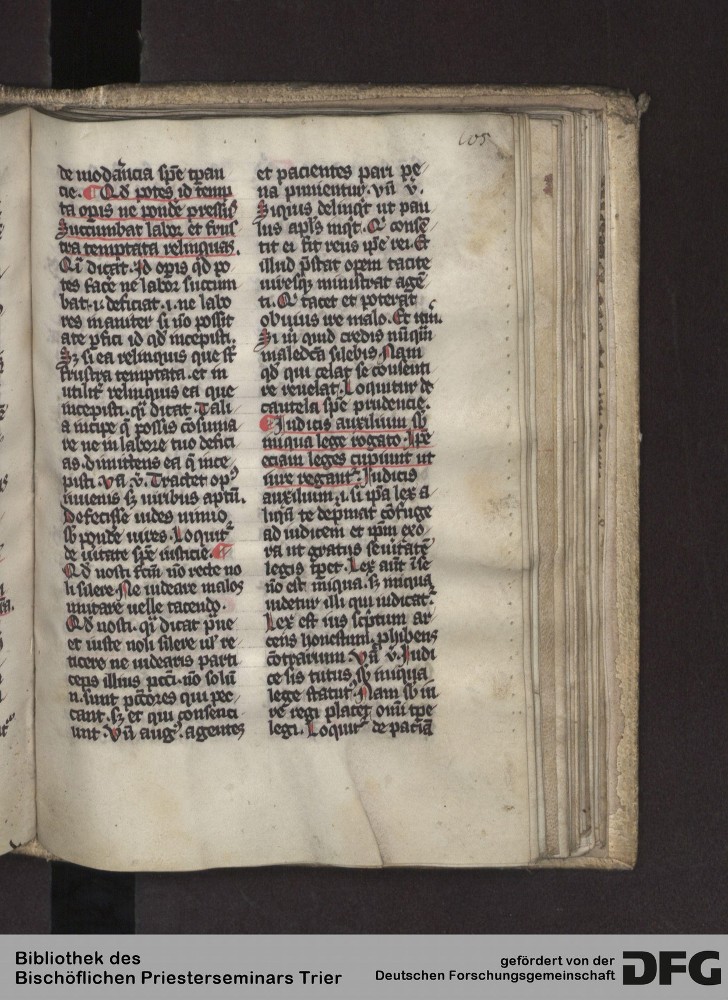 105
de modãncia spẽ tpan
cie. Qd potes id temp
ta opis ne pondẽ pressus
Succumbat labor et frus
tra temptata relinquas.
Qi dicat. Id opis qd po
tes facẽ ne labor succum
bat .i. deficiat .i. ne labo
res inaniter si nõ possit
ate pfici id qd incepisti.
Sz si ea relinquis que st
frustra temptata. et in
utilitr relinquis ea que
incepisti. qi dicat. Tali
a incipe q possis cõsuma
re ne in labore tuo defici
as dimittens ea q ince
pisti. Vñ ṽ. Tractet opꝰ
iuvenis sz viribus aptũ.
Defecisse vides nimio
sb pondẽ vires. Loquitr
de vitate spẽ iusticie.
Qd nosti fcm nõ recte no
li silere. Ne videare malos
imitare velle tacendo.
Qd nosti. qi dicat pne
et iuste noli silere vl re
ticere ne videaris parti
ceps illius pcci. nõ solũ
n. sunt pctores qui pec
cant. sz et qui consenci
unt. Vñ augꝰ. agentes
et pacientes pari pe
na punientur. vñ ṽ.
Siquis delinqt ut pau
lus apls inqt. Q conse
tit ei fit reus ipe rei. Et
illud pstat opem tacite
viresqz ministrat agẽ
ti. Q tacet et poterat
obvius ire malo. Et
Si quid credis
maledca silebis. Nam
qd qui celat se consenti
re revelat. Loquitur de
cautela spẽ prudencie.
Iudicis auxilium sb
iniqua lege rogato. Ipe
eciam leges cupiunt ut
iure regantr. Iudicis
auxilium .i. si ipa lex a
liqua te depmat cõfuge
ad iudicem et ipm exo
ra ut gratus sevitatẽ
legis tpet. Lex aut i se
nõ est iniqua. sz iniqua
videtur illi qui iudicatr.
Lex est ius scptum ar
cens honestum. phibens
cõtrarium. Vñ ṽ. Iudi
ce sis tutus sb iniqua
lege statutꝰ. Nam sb iu
re regi placet omi tpe
legi. Loquitr de patia
Bibliothek des
Bischöflichen Priesterseminars Trier
gefördert von der
Deutschen Forschungsgemeinschaft
DFG